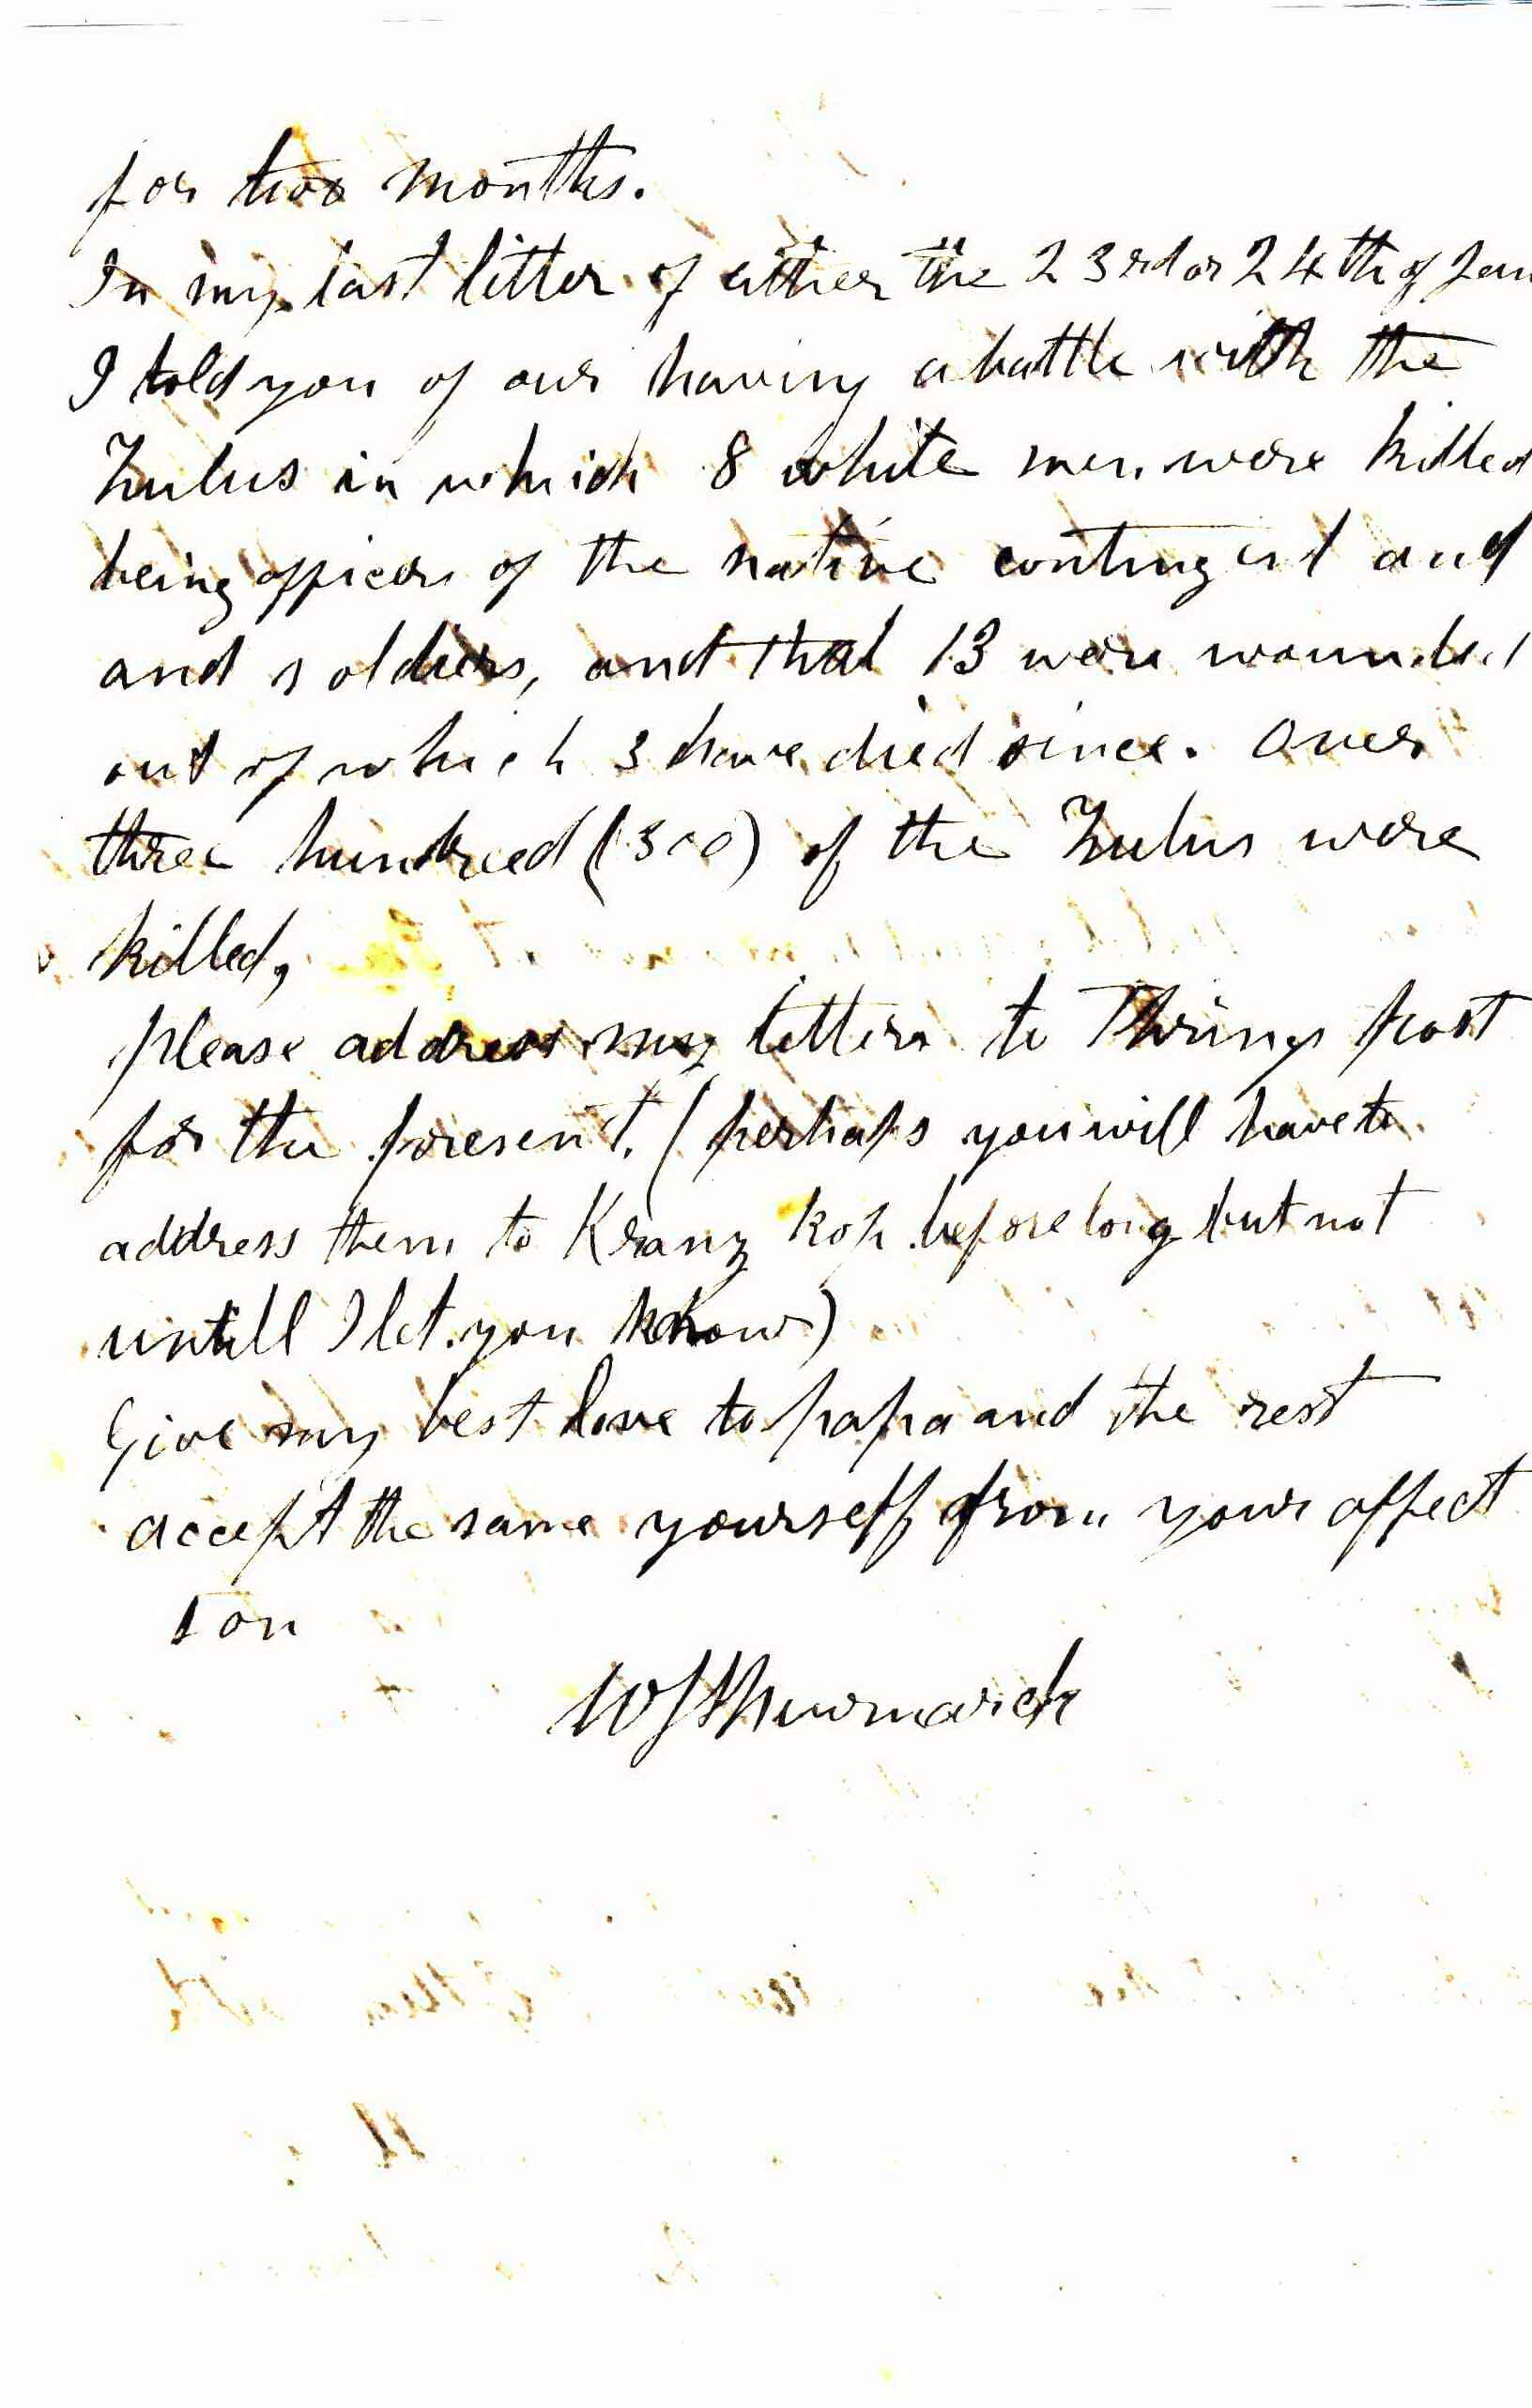 for two months.
In my last litter of either the 23rd or 24th of Jan
I told you of our having a battle with the
Zulus in which 8 white men were killed
being officers of the native contingent and
and soldiers, and that 13 were wounded
out of which 3 have died since. Over
three hundred (300) of the Zulus were
killed,
please address my letters to Thrings post
for the present. (perhaps you will have to
address them to Kranz kop before long but not
untill I let you know)
Give my best love to papa and the rest
accept the same yourself from your affect
son